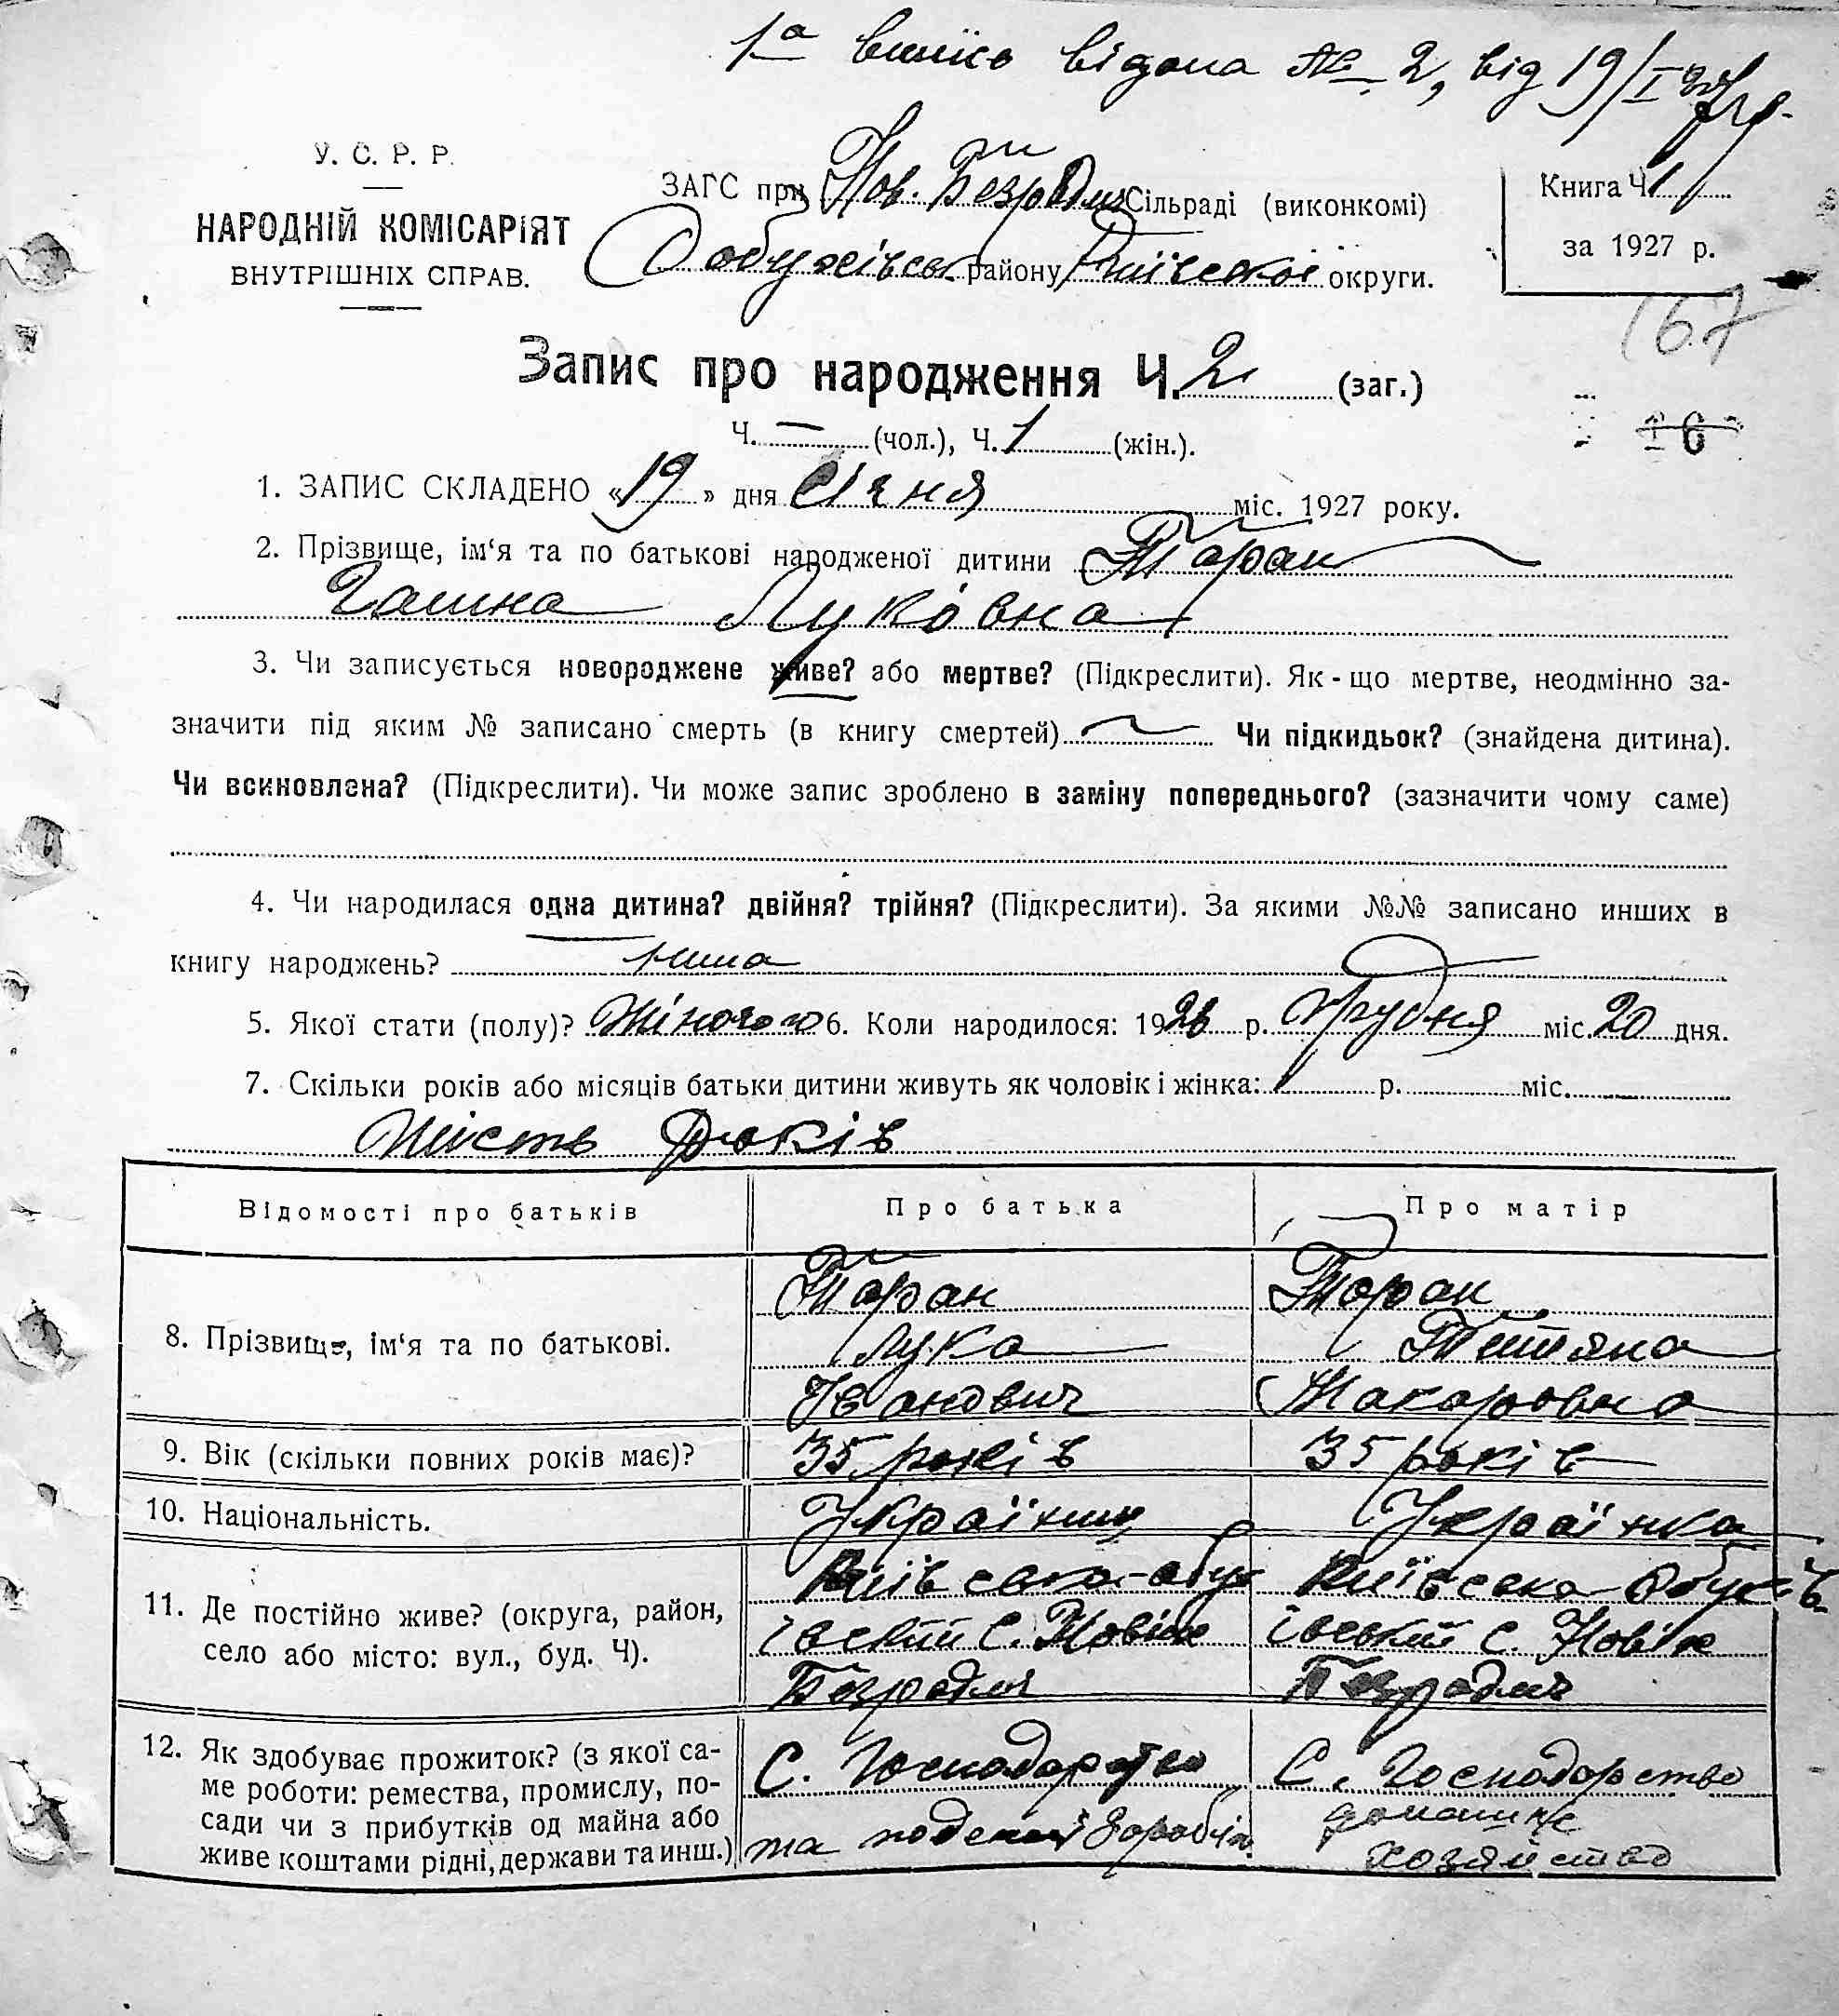 1а випись видана № 2, від 19/I 27 р.
У. С. Р. Р.
НАРОДНІЙ КОМІСАРІЯТ
ВНУТРІШНІХ СПРАВ.
ЗАГС при Нов. Безрадич Сільраді (виконкомі)
Обухівськ району Київської округи.
Книга Ч. 1
за 1927 р.
167
Запис про народження Ч. 2 (заг.)
Ч. — (чол.), Ч. 1 (жін.).
1. ЗАПИС СКЛАДЕНО «19» дня Січня міс. 1927 року.
2. Прізвище, ім‘я та по батькові народженої дитини Таран
Галина Луковна
3. Чи записується новороджене живе? або мертве? (Підкреслити). Як-що мертве, неодмінно за-
значити під яким № записано смерть (в книгу смертей) — Чи підкидьок? (знайдена дитина).
Чи всиновлена? (Підкреслити). Чи може запис зроблено в заміну попереднього? (зазначити чому саме)
4. Чи народилася одна дитина? двійня? трійня? (Підкреслити). За якими №№ записано инших в
книгу народжень?
5. Якої стати (полу)? Жіночого 6. Коли народилося: 1926 р. Грудня міс. 20 дня.
7. Скільки років або місяців батьки дитини живуть як чоловік і жінка: р. міс.
Шість років
Відомості про батьків Про батька Про матір
8. Прізвище, ім‘я та по батькові.
Таран
Лука
Іванович
Таран
Тетяна
Макаровна
9. Вік (скільки повних років має)? 35 років 35 років
10. Національність. Українец Українка
11. Де постійно живе? (округа, район,
село або місто: вул., буд. Ч).
Київська обух
івский с. Нових
Безрадич
Київська Обухів
івський с. Нових
Безрадич
12. Як здобуває прожиток? (з якої са-
ме роботи: ремества, промислу, по-
сади чи з прибутків од майна або
живе коштами рідні, держави та инш.)
С. Господарство
та поденний заробіт.
С. Господарство
домашнє
хозяйство